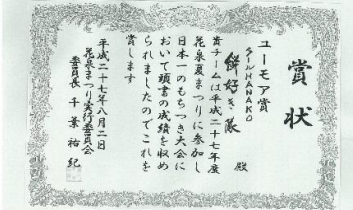 賞状
ユーモア賞
チームHANAKO
餅好き隊 殿
貴チームは平成二十七年度
花泉夏まつりに参加し
日本一のもちつき大会に
おいて頭書の成績を収め
られましたのでこれを
賞します
平成二十七年八月二日
花泉まつり実行委員会
委員長 千葉祐紀